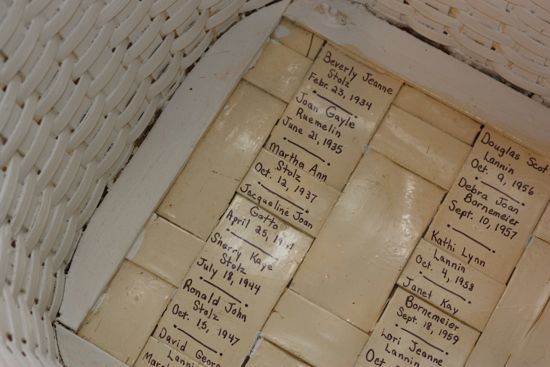 Beverly Jeanne
Stolz
Febr. 23, 1934
Joan Gayle
Ruemelin
June 21, 1935
Martha Ann
Stolz
Oct. 12, 1937
Jacqueline Joan
Gatto
April 25,
Sherry Kaye
Stolz
July 18, 1944
Ronald John
Stolz
Oct. 15, 1947
David
Douglas Scot
Lannin
Oct. 9, 1956
Debra Joan
Bornemeier
Sept. 10, 1957
Kathi Lynn
Lannin
Oct. 4, 1958
Janet Kay
Bornemeier
Sept. 18, 1959
Lori Jeanne
Lannin
Oct.